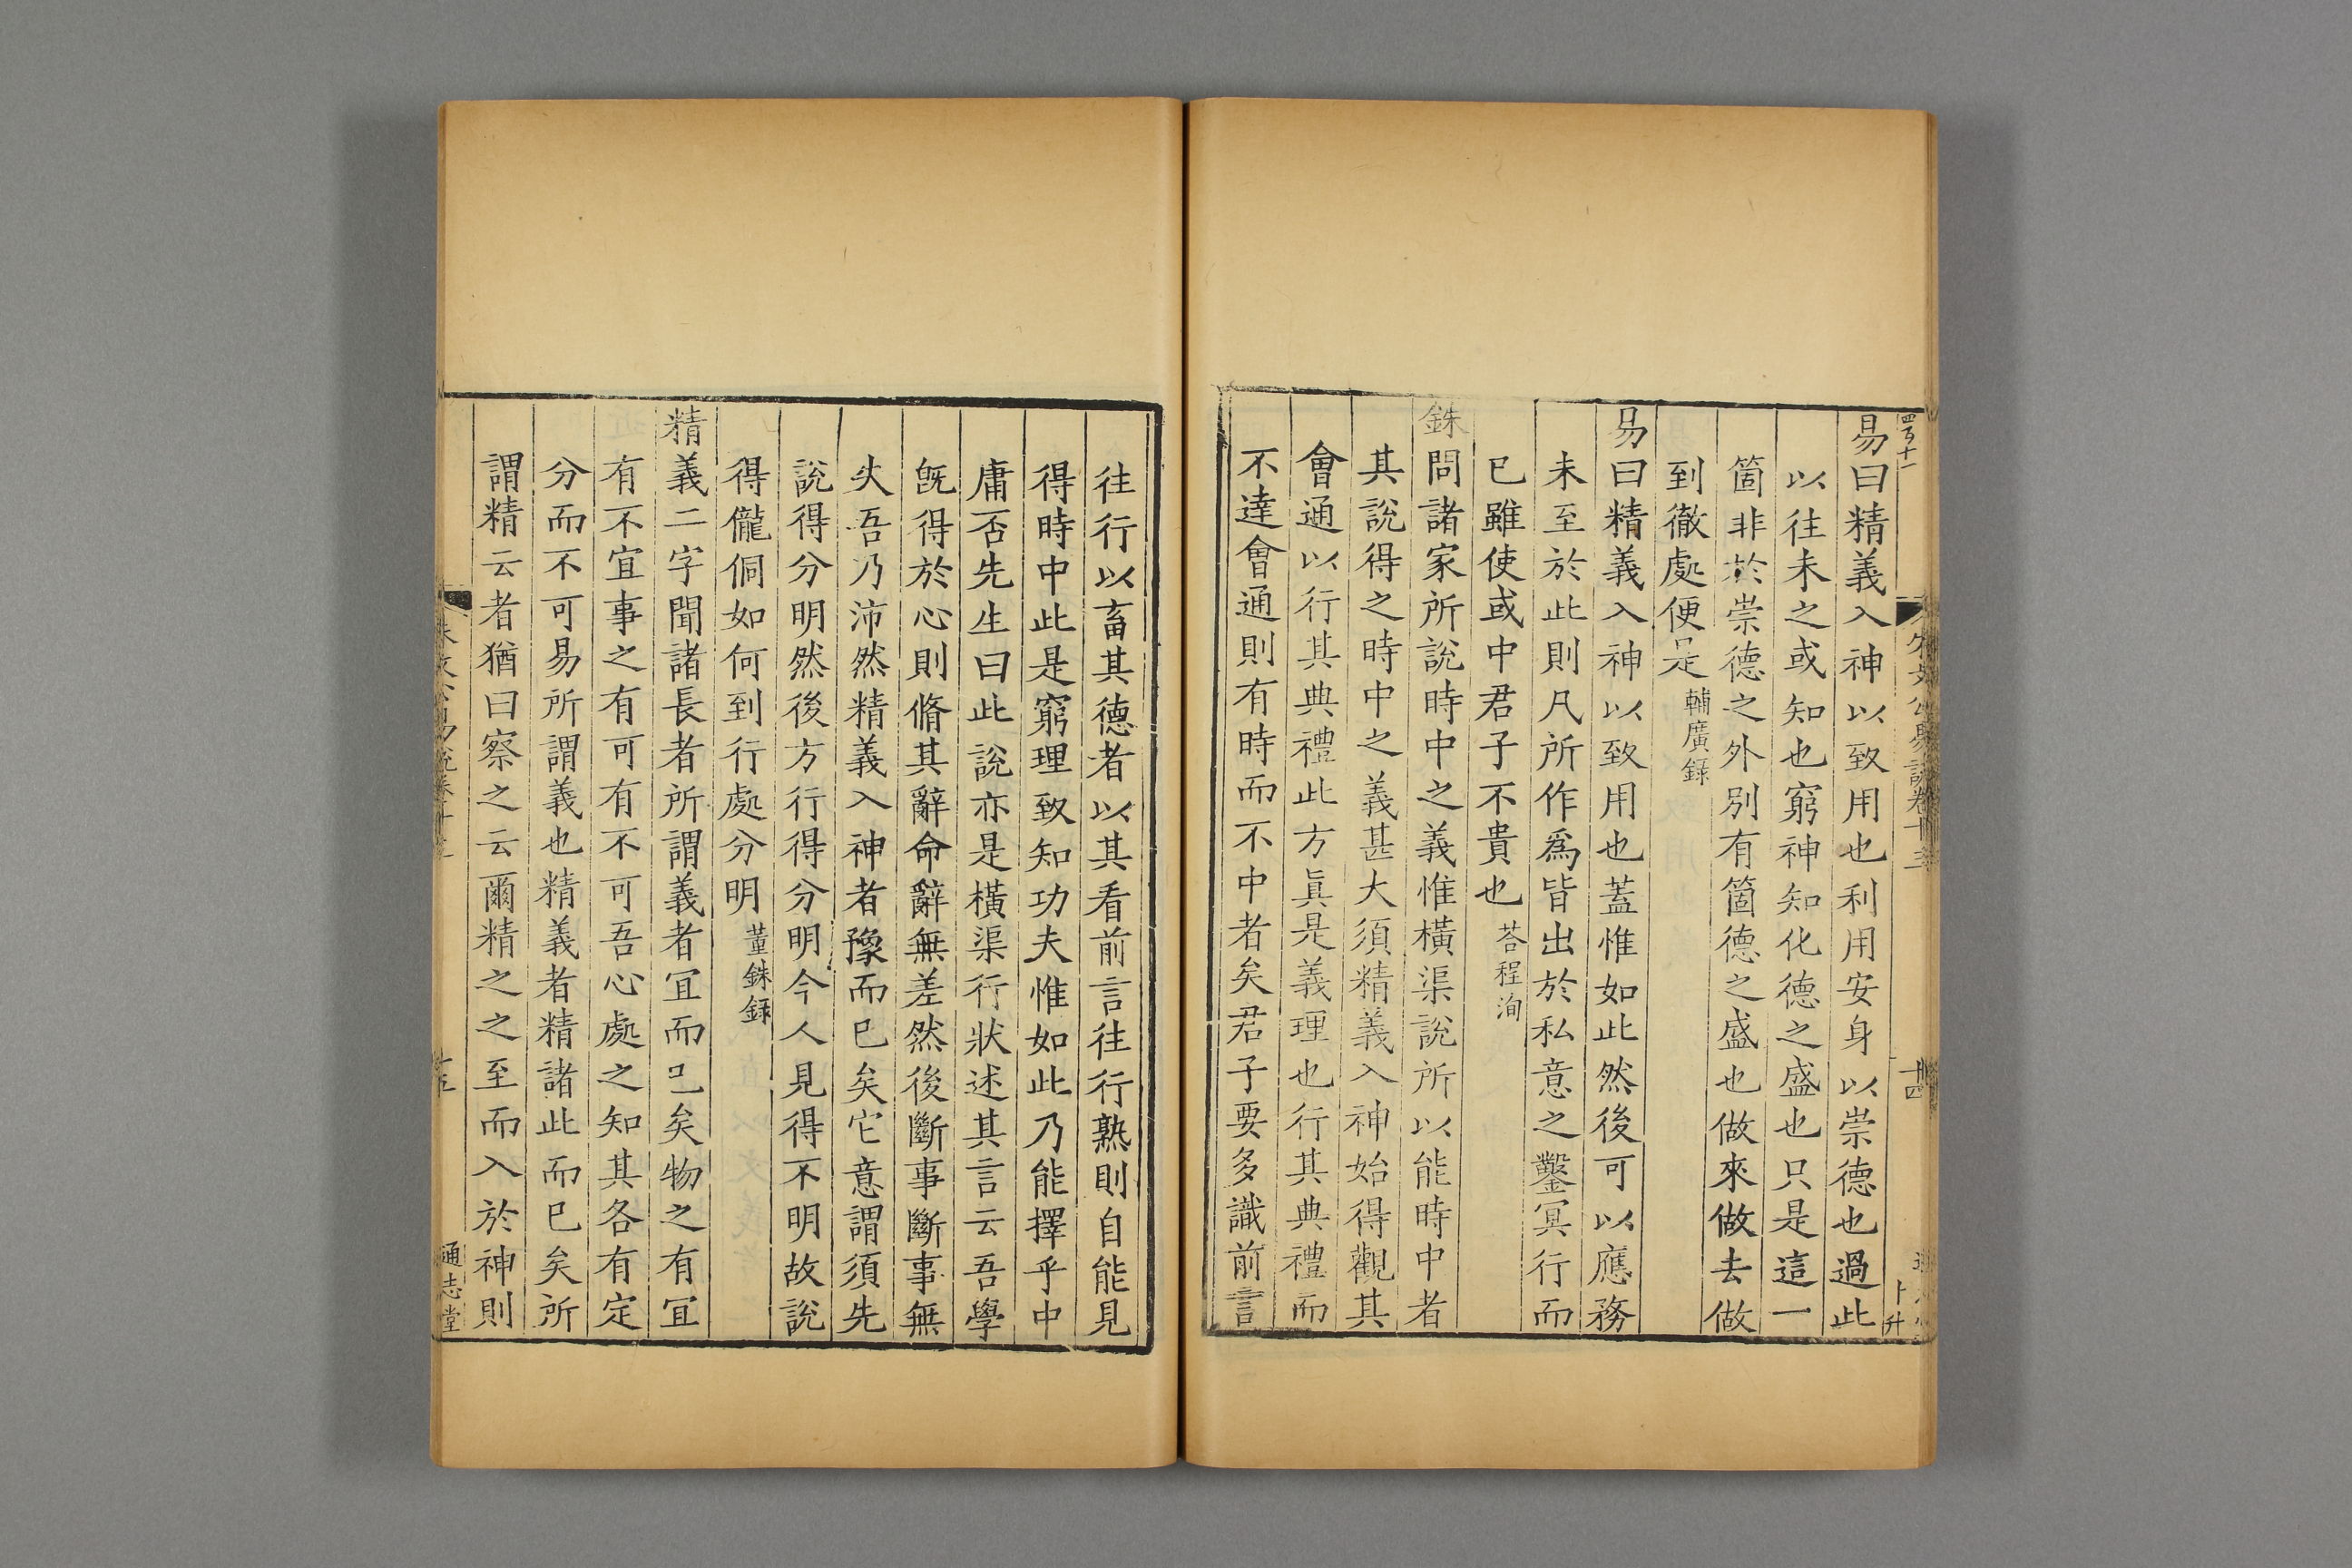 易曰精義入神以致用也利用安身以崇德也過此
以往未之或知也窮神知化德之盛也只是這一
箇非於崇德之外別有箇德之盛也做來做去做
到徹處便是輔廣録
易曰精義入神以致用也蓋惟如此然後可以應務
未至於此則凡所作爲皆出於私意之鑿冥行而
已雖使或中君子不貴也荅程洵
銖問諸家所說時中之義惟橫渠說所以能時中者
其說得之時中之義甚大須精義入神始得觀其
會通以行其典禮此方眞是義理也行其典禮而
不達會通則有時而不中者矣君子要多識前言
往行以畜其德者以其看前言往行熟則自能見
得時中此是窮理致知功夫惟如此乃能擇乎中
庸否先生曰此說亦是橫渠行狀述其言云吾學
旣得於心則脩其辭命辭無差然後斷事斷事無
失吾乃沛然精義入神者豫而已矣它意謂須先
說得分明然後方行得分明今人見得不明故說
得儱侗如何到行處分明董銖録
精義二字聞諸長者所謂義者宜而已矣物之有宜
有不宜事之有可有不可吾心處之知其各有定
分而不可易所謂義也精義者精諸此而已矣所
謂精云者猶曰察之云爾精之之至而入於神則
通志堂